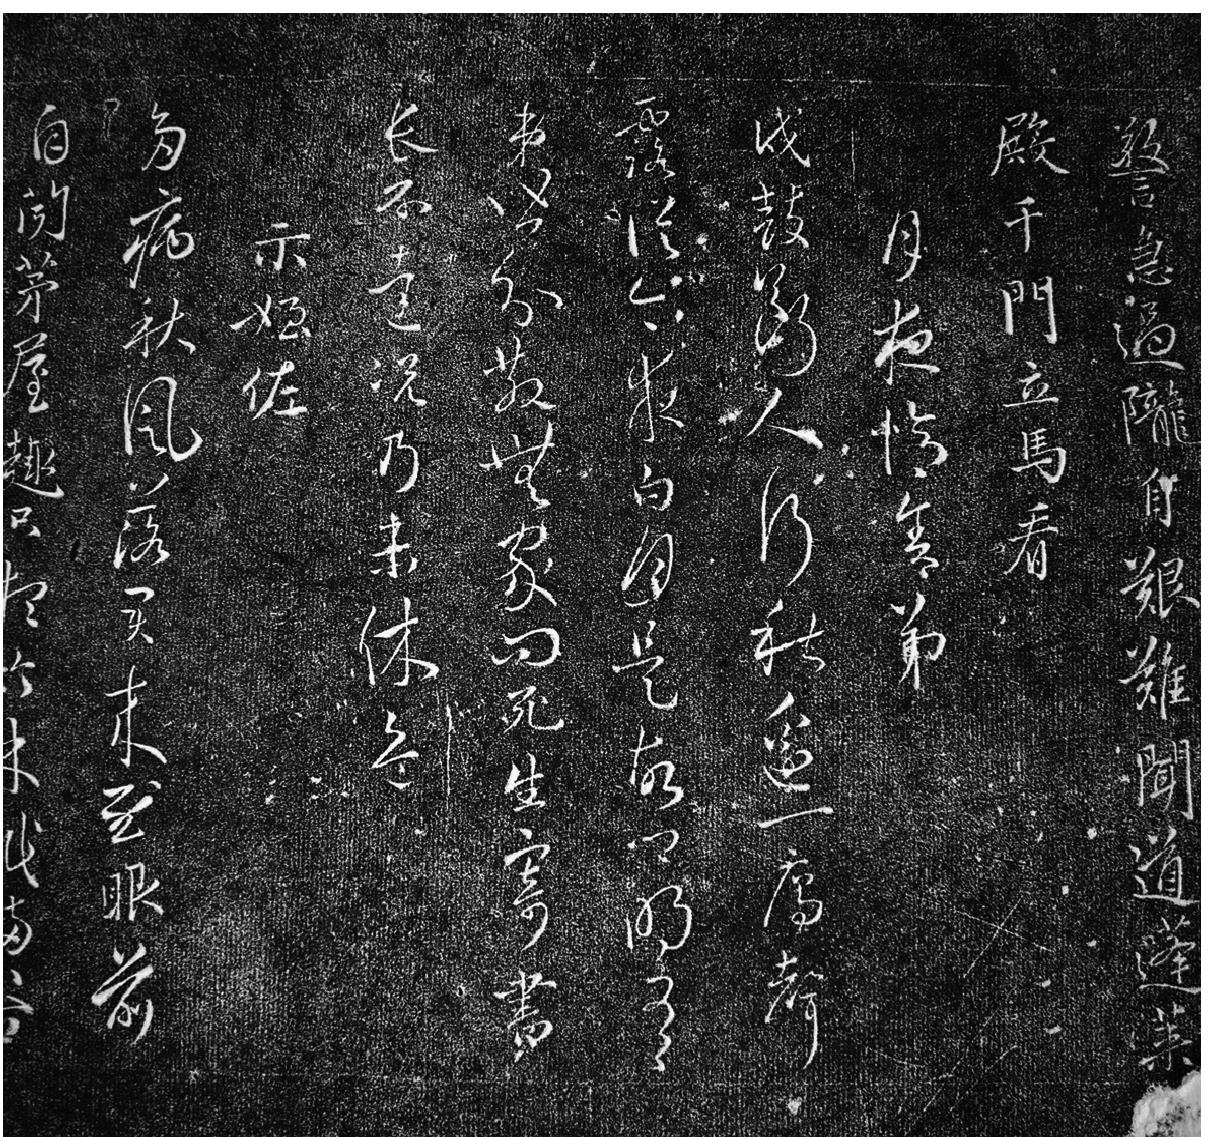 警急過隴自艱難聞道蓬萊
殿千門立馬看
月夜憶舍弟
戍鼓斷人行秋邊一雁聲
露從今夜白月是故鄉明有
弟皆分散無家問死生寄書
長不達況乃未休兵
示姪佐
多病秋風落君來慰眼前
自聞茅屋趣只想竹林眠滿谷